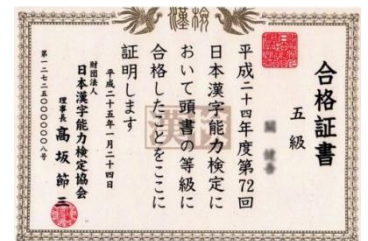 漢検
合格証書
五級
平成二十四年度第72回
日本漢字能力検定に
おいて頭書の等級に
合格したことをここに
証明します
平成二十五年一月二十四日
財団法人
日本漢字能力検定協会
理事長 髙坂節三
漢検